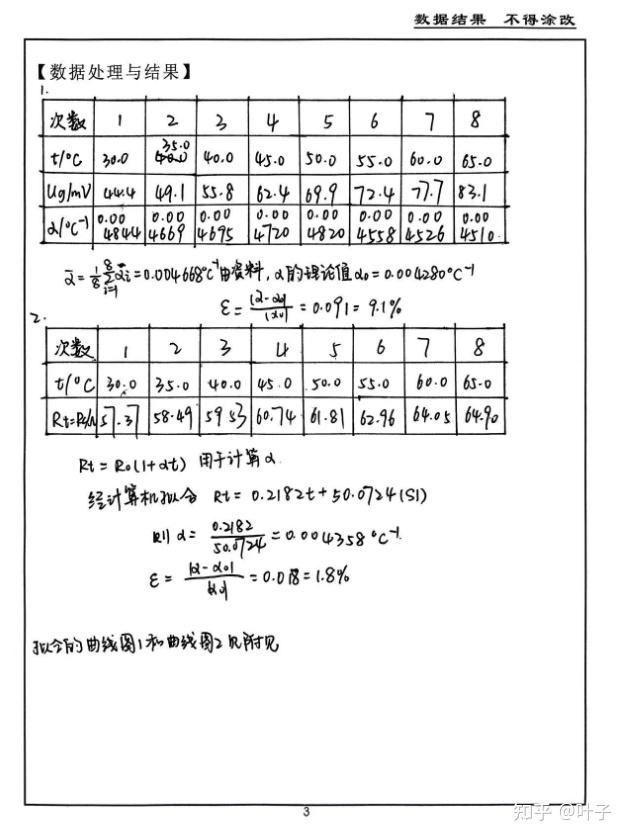 数据结果 不得涂改
【数据处理与结果】
1.
次数 1 2 3 4 5 6 7 8
t/°C 30.0 35.0 40.0 45.0 50.0 55.0 60.0 65.0
Ug/mV 44.4 49.1 55.8 62.4 69.9 72.4 77.7 83.1
α/°C⁻¹ 0.004844 0.004669 0.004695 0.004720 0.004820 0.004558 0.004526 0.004510
ᾱ = 1/8 8∑i=1 αi = 0.004668°C⁻¹ 由资料, α的理论值α₀ = 0.004280°C⁻¹
ε = |α-α₀|/|α₀| = 0.091 = 9.1%
2.
次数 1 2 3 4 5 6 7 8
t/°C 30.0 35.0 40.0 45.0 50.0 55.0 60.0 65.0
57.37 58.49 59.53 60.74 61.81 62.96 64.05 64.90
Rt = R₀(1+αt) 用于计算α
经计算机拟合 Rt = 0.2182t + 50.0724 (SI)
则 α = 0.2182/50.0724 = 0.004358°C⁻¹
ε = |α-α₀|/|α₀| = 0.018 = 1.8%
拟合的曲线图1和曲线图2见附见
3
知乎 @叶子